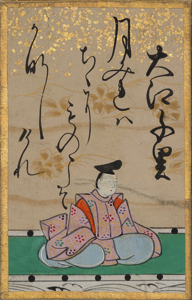 大江千里
月みれハ
ちゝに
ものこそ
かなし
けれ